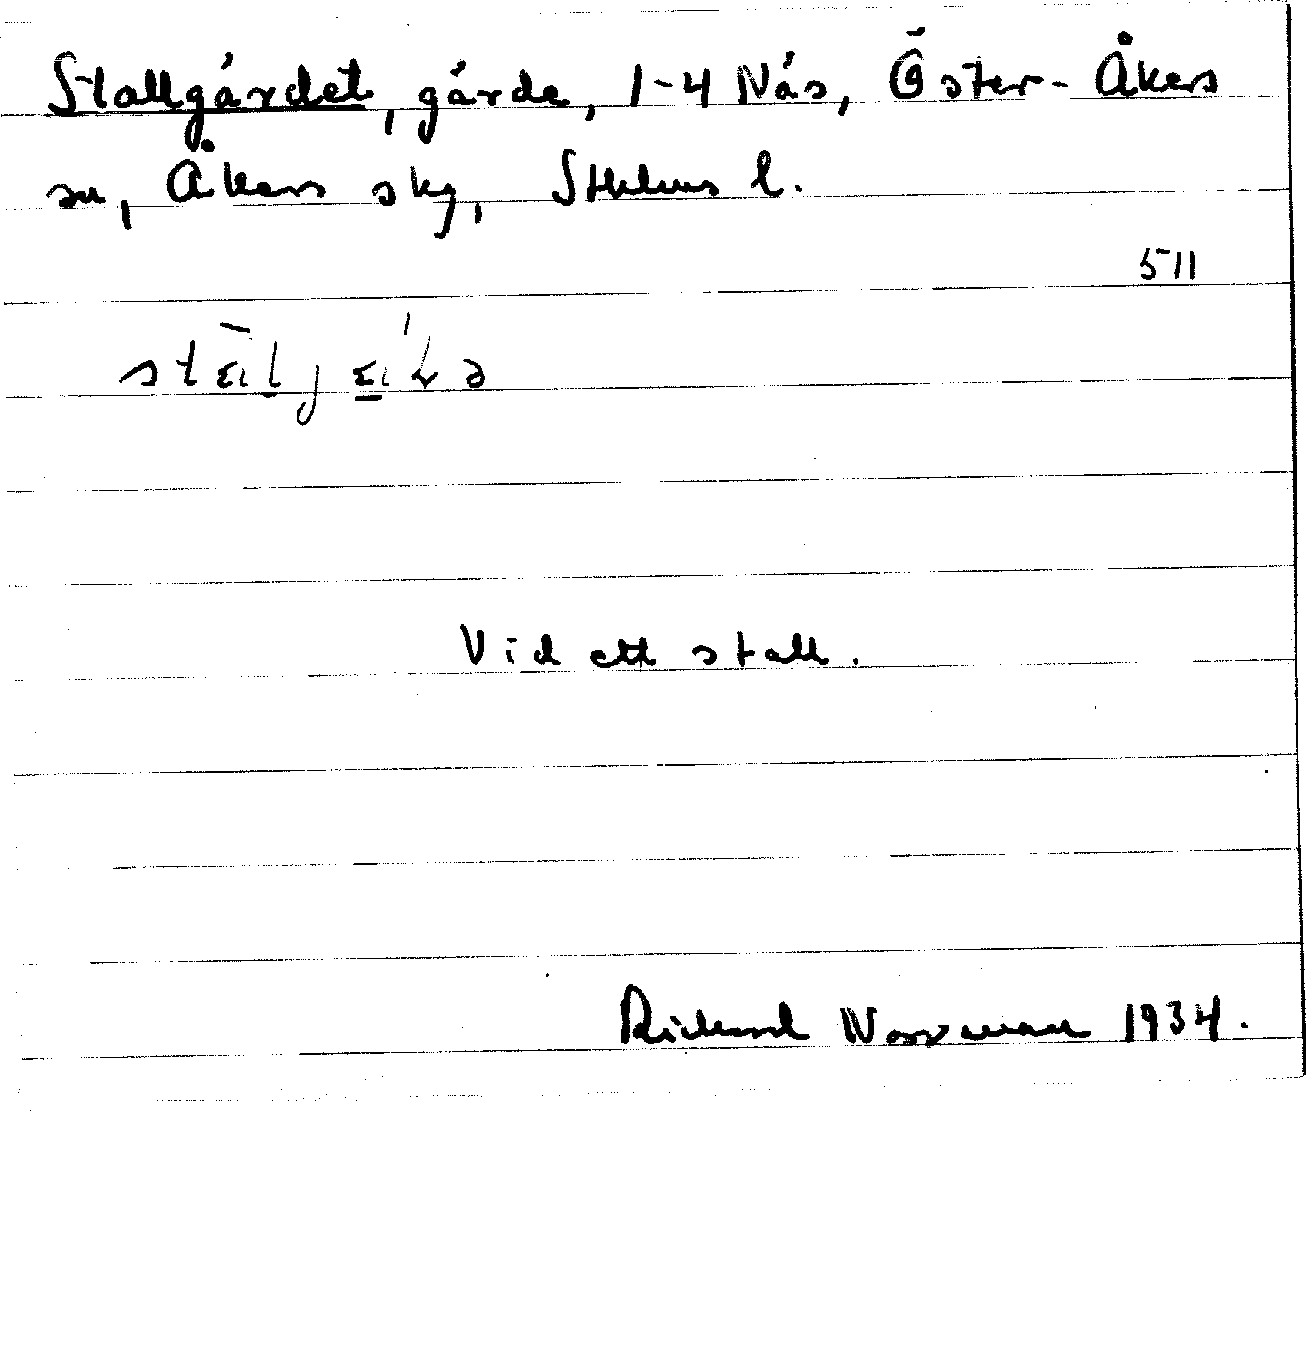 Stallgärdet, gärde, 1-4 Näs, Öster-Åkers
sn, Åkers skg, Sthlms l.
511
Vid ett stall.
Richard 1934.